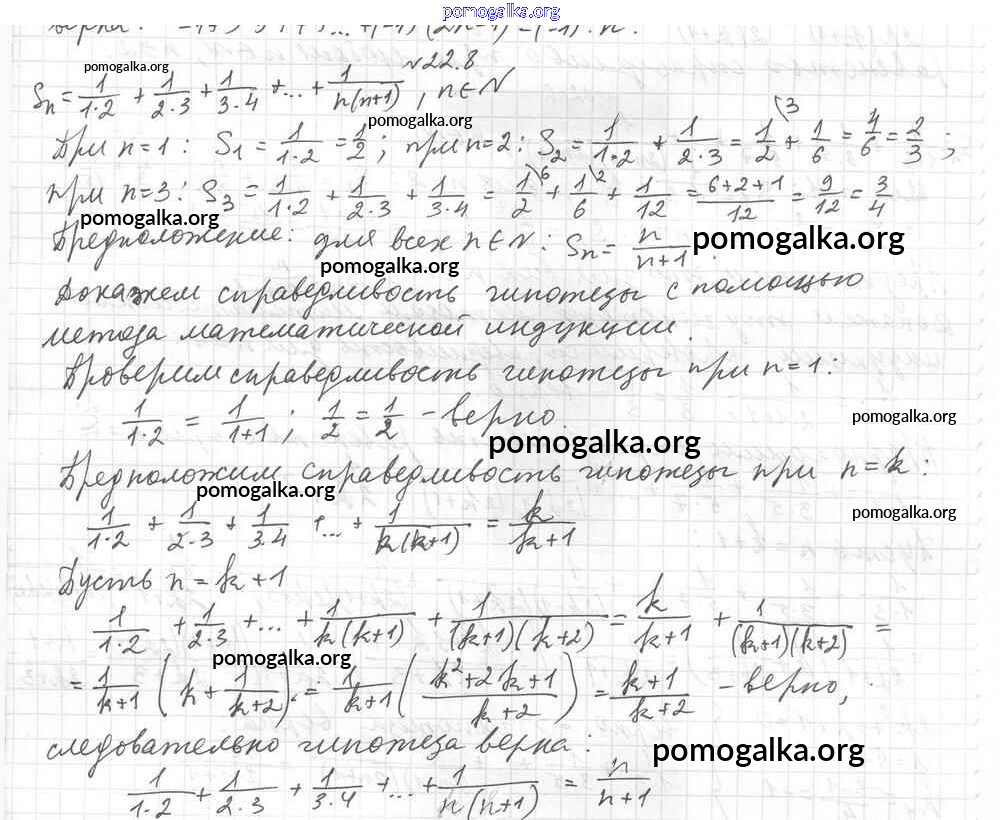 pomogalka.org
верна: -1+3-5+7-5...+(-1)ⁿ(2n-1)=(-1)ⁿ·n.
№22.8
pomogalka.org
Sₙ = 1/(1·2) + 1/(2·3) + 1/(3·4) + ... + 1/(n(n+1)), n∈N
pomogalka.org
При n=1: S₁ = 1/(1·2) = 1/2; при n=2: S₂ = 1/(1·2) + 1/(2·3) = 1/2 \3 + 1/6 = 4/6 = 2/3;
при n=3: S₃ = 1/(1·2) + 1/(2·3) + 1/(3·4) = 1/2 \6 + 1/6 \2 + 1/12 = (6+2+1)/12 = 9/12 = 3/4
pomogalka.org
Предположение: для всех n∈N: Sₙ = n/(n+1).
pomogalka.org
pomogalka.org
Докажем справедливость гипотезы с помощью
метода математической индукции.
Проверим справедливость гипотезы при n=1:
1/(1·2) = 1/(1+1); 1/2 = 1/2 - верно.
pomogalka.org
pomogalka.org
Предположим справедливость гипотезы при n=k:
pomogalka.org
pomogalka.org
1/(1·2) + 1/(2·3) + 1/(3·4) + ... + 1/(k(k+1)) = k/(k+1)
Пусть n=k+1
1/(1·2) + 1/(2·3) + ... + 1/(k(k+1)) + 1/((k+1)(k+2)) = k/(k+1) + 1/((k+1)(k+2)) =
pomogalka.org
= 1/(k+1) (k + 1/(k+2)) = 1/(k+1) ((k²+2k+1)/(k+2)) = (k+1)/(k+2) - верно,
следовательно гипотеза верна:
pomogalka.org
1/(1·2) + 1/(2·3) + 1/(3·4) + ... + 1/(n(n+1)) = n/(n+1)